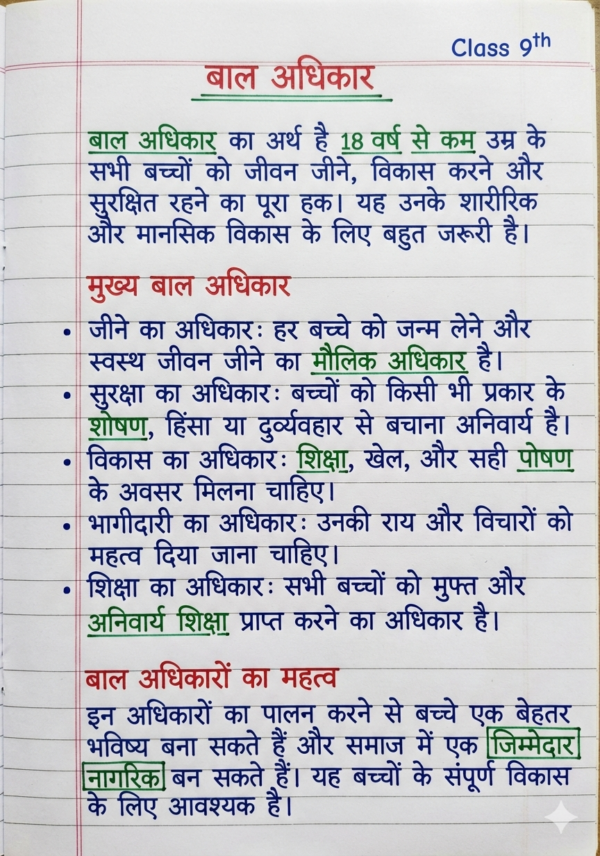 Class 9th
बाल अधिकार
बाल अधिकार का अर्थ है 18 वर्ष से कम उम्र के
सभी बच्चों को जीवन जीने, विकास करने और
सुरक्षित रहने का पूरा हक। यह उनके शारीरिक
और मानसिक विकास के लिए बहुत जरूरी है।
मुख्य बाल अधिकार
• जीने का अधिकार: हर बच्चे को जन्म लेने और
स्वस्थ जीवन जीने का मौलिक अधिकार है।
• सुरक्षा का अधिकार: बच्चों को किसी भी प्रकार के
शोषण, हिंसा या दुर्व्यवहार से बचाना अनिवार्य है।
• विकास का अधिकार: शिक्षा, खेल, और सही पोषण
के अवसर मिलना चाहिए।
• भागीदारी का अधिकार: उनकी राय और विचारों को
महत्व दिया जाना चाहिए।
• शिक्षा का अधिकार: सभी बच्चों को मुफ्त और
अनिवार्य शिक्षा प्राप्त करने का अधिकार है।
बाल अधिकारों का महत्व
इन अधिकारों का पालन करने से बच्चे एक बेहतर
भविष्य बना सकते हैं और समाज में एक जिम्मेदार
नागरिक बन सकते हैं। यह बच्चों के संपूर्ण विकास
के लिए आवश्यक है।